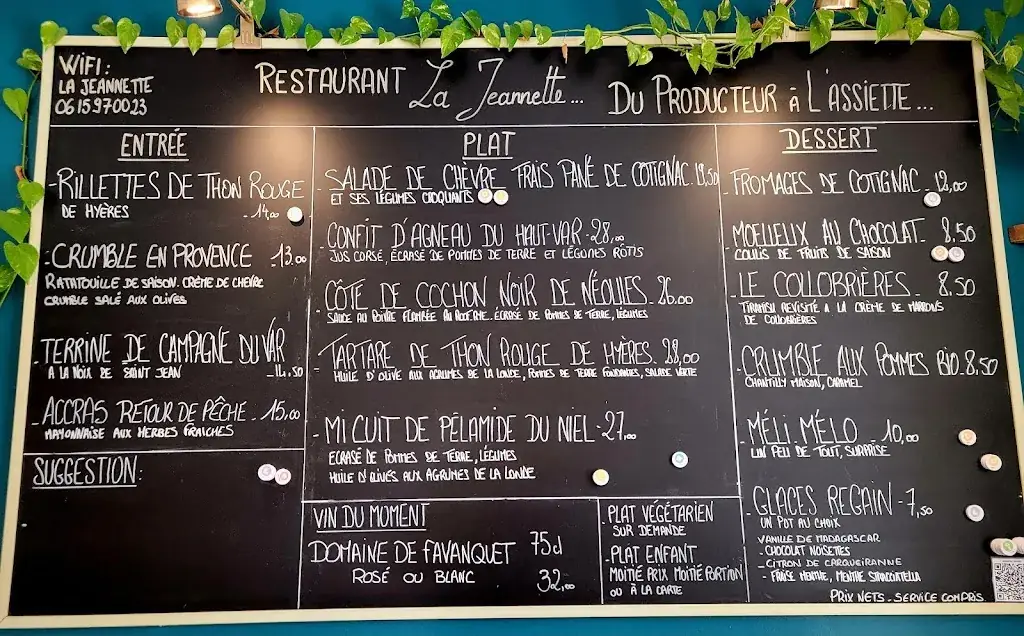 WIFI:
LA JEANNETTE
0615970023
RESTAURANT La Jeannette... DU PRODUCTEUR à L'ASSIETTE...
ENTRÉE
- RILLETTES DE THON ROUGE
DE HYÈRES - 14,00
- CRUMBLE EN PROVENCE - 13.00
RATATOUILLE DE SAISON. CRÈME DE CHEVRE
CRUMBLE SALÉ AUX OLIVES
- TERRINE DE CAMPAGNE DU VAR
A LA NOIX DE SAINT JEAN - 14.50
- ACCRAS RETOUR DE PÊCHE - 15,00
MAYONNAISE AUX HERBES FRAICHES
SUGGESTION:
PLAT
- SALADE DE CHÈVRE FRAIS PANÉ DE COTIGNAC. 19,50
ET SES LÉGUMES CROQUANTS
- CONFIT D'AGNEAU DU HAUT-VAR - 28,00
JUS CORSÉ, ÉCRASÉ DE POMMES DE TERRE ET LÉGUMES RÔTIS
- CÔTE DE COCHON NOIR DE NÉOULES. 26.00
SAUCE AU POIVRE FLAMBÉE AU ÉCRASÉ DE POMMES DE TERRE, LÉGUMES
- TARTARE DE THON ROUGE DE HYÈRES. 28,00
HUILE D'OLIVE AUX AGRUMES DE LA LONDE, POMMES DE TERRE FONDANTES, SALADE VERTE
- MI CUIT DE PÉLAMIDE DU NIEL - 27,00
ECRASÉ DE POMMES DE TERRE, LÉGUMES
HUILE D'OLIVES AUX AGRUMES DE LA LONDE
VIN DU MOMENT
DOMAINE DE FAVANQUET 75cl
ROSÉ OU BLANC 32,00
- PLAT VÉGÉTARIEN
SUR DEMANDE
- PLAT ENFANT
MOITIÉ PRIX MOITIÉ PORTION
OU À LA CARTE
DESSERT
- FROMAGES DE COTIGNAC - 12,00
- MOELLEUX AU CHOCOLAT - 8.50
COULIS DE FRUITS DE SAISON
- LE COLLOBRIÈRES - 8.50
TIRAMISU REVISITÉ A LA CRÈME DE MARRONS
DE COLLOBRIÈRES
- CRUMBLE AUX POMMES BIO. 8.50
CHANTILLY MAISON, CARAMEL
- MÉLI MÉLO - 10,00
UN PEU DE TOUT, SURPRISE
- GLACES REGAIN - 7,50
UN POT AU CHOIX
VANILLE DE MADAGASCAR
- CHOCOLAT NOISETTES
- CITRON DE CARQUEIRANNE
- FRAISE MENTHE, MENTHE STRACCIATELLA
PRIX NETS - SERVICE COMPRIS